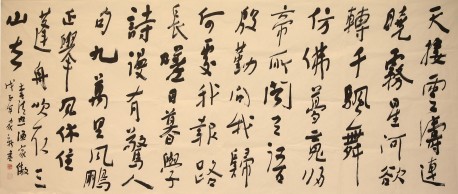 天接雲濤連
曉霧星河欲
轉千帆舞
仿佛夢魂歸
帝所闻天語
殷勤问我歸
何處我報路
長嗟日暮學
詩漫有驚人
句九萬里風鵬
正舉风休住
蓬舟吹取三
山去
李清照渔家傲
戊子